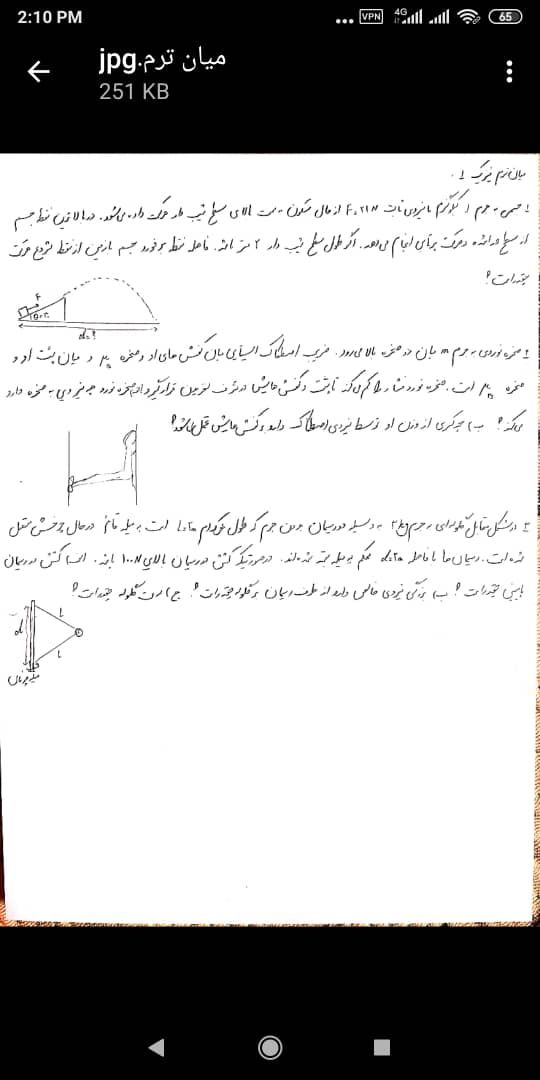 2:10 PM
VPN 4G 65
میان ترم.jpg
251 KB
میان ترم فیزیک 1
1 جسمی به جرم 1 کیلوگرم با نیروی ثابت F=21N از حال سکون به سمت بالای سطح شیب دار حرکت داده می‌شود. در بالاترین نقطه جسم
از سطح جدا شده و حرکت پرتابی انجام می‌دهد. اگر طول سطح شیب دار 2 متر باشد. فاصله نقطه برخورد جسم با زمین از نقطه شروع حرکت
چقدر است؟
F
d=?
2 صخره نوردی به جرم m میان دو صخره بالا می‌رود. ضریب اصطکاک ایستایی میان کفش های او و صخره و میان پشت او و
صخره است. صخره نورد فشار را کم می‌کند تا پشت و کفش هایش در شرف لغزیدن قرار گیرد صخره نورد چه نیرویی به صخره وارد
می‌کند؟ ب) چه کسری از وزن او توسط نیروی اصطکاک وارد بر کفش هایش تحمل می‌شود؟
3 در شکل مقابل گلوله‌ای به جرم 2kg به وسیله دو ریسمان بدون جرم که طول هر کدام L=2m است به میله قائم در حال چرخش متصل
شده است. ریسمان ها با فاصله d=2m محکم به میله بسته شده‌اند. در صورتیکه کشش ریسمان بالایی 100N باشد. الف) کشش در ریسمان
پایینی چقدر است؟ ب) بزرگی نیروی خالص وارد از طرف ریسمان بر گلوله چقدر است؟ ج) سرعت گلوله چقدر است؟
d
L
L
میله چرخان